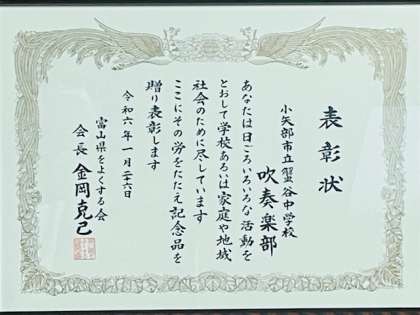 表彰状
小矢部市立蟹谷中学校
吹奏楽部
あなたは日ごろいろいろな活動を
とおして学校あるいは家庭や地域
社会のために尽しています
ここにその労をたたえ記念品を
贈り表彰します
令和六年一月二十六日
富山県をよくする会
会長 金岡克己